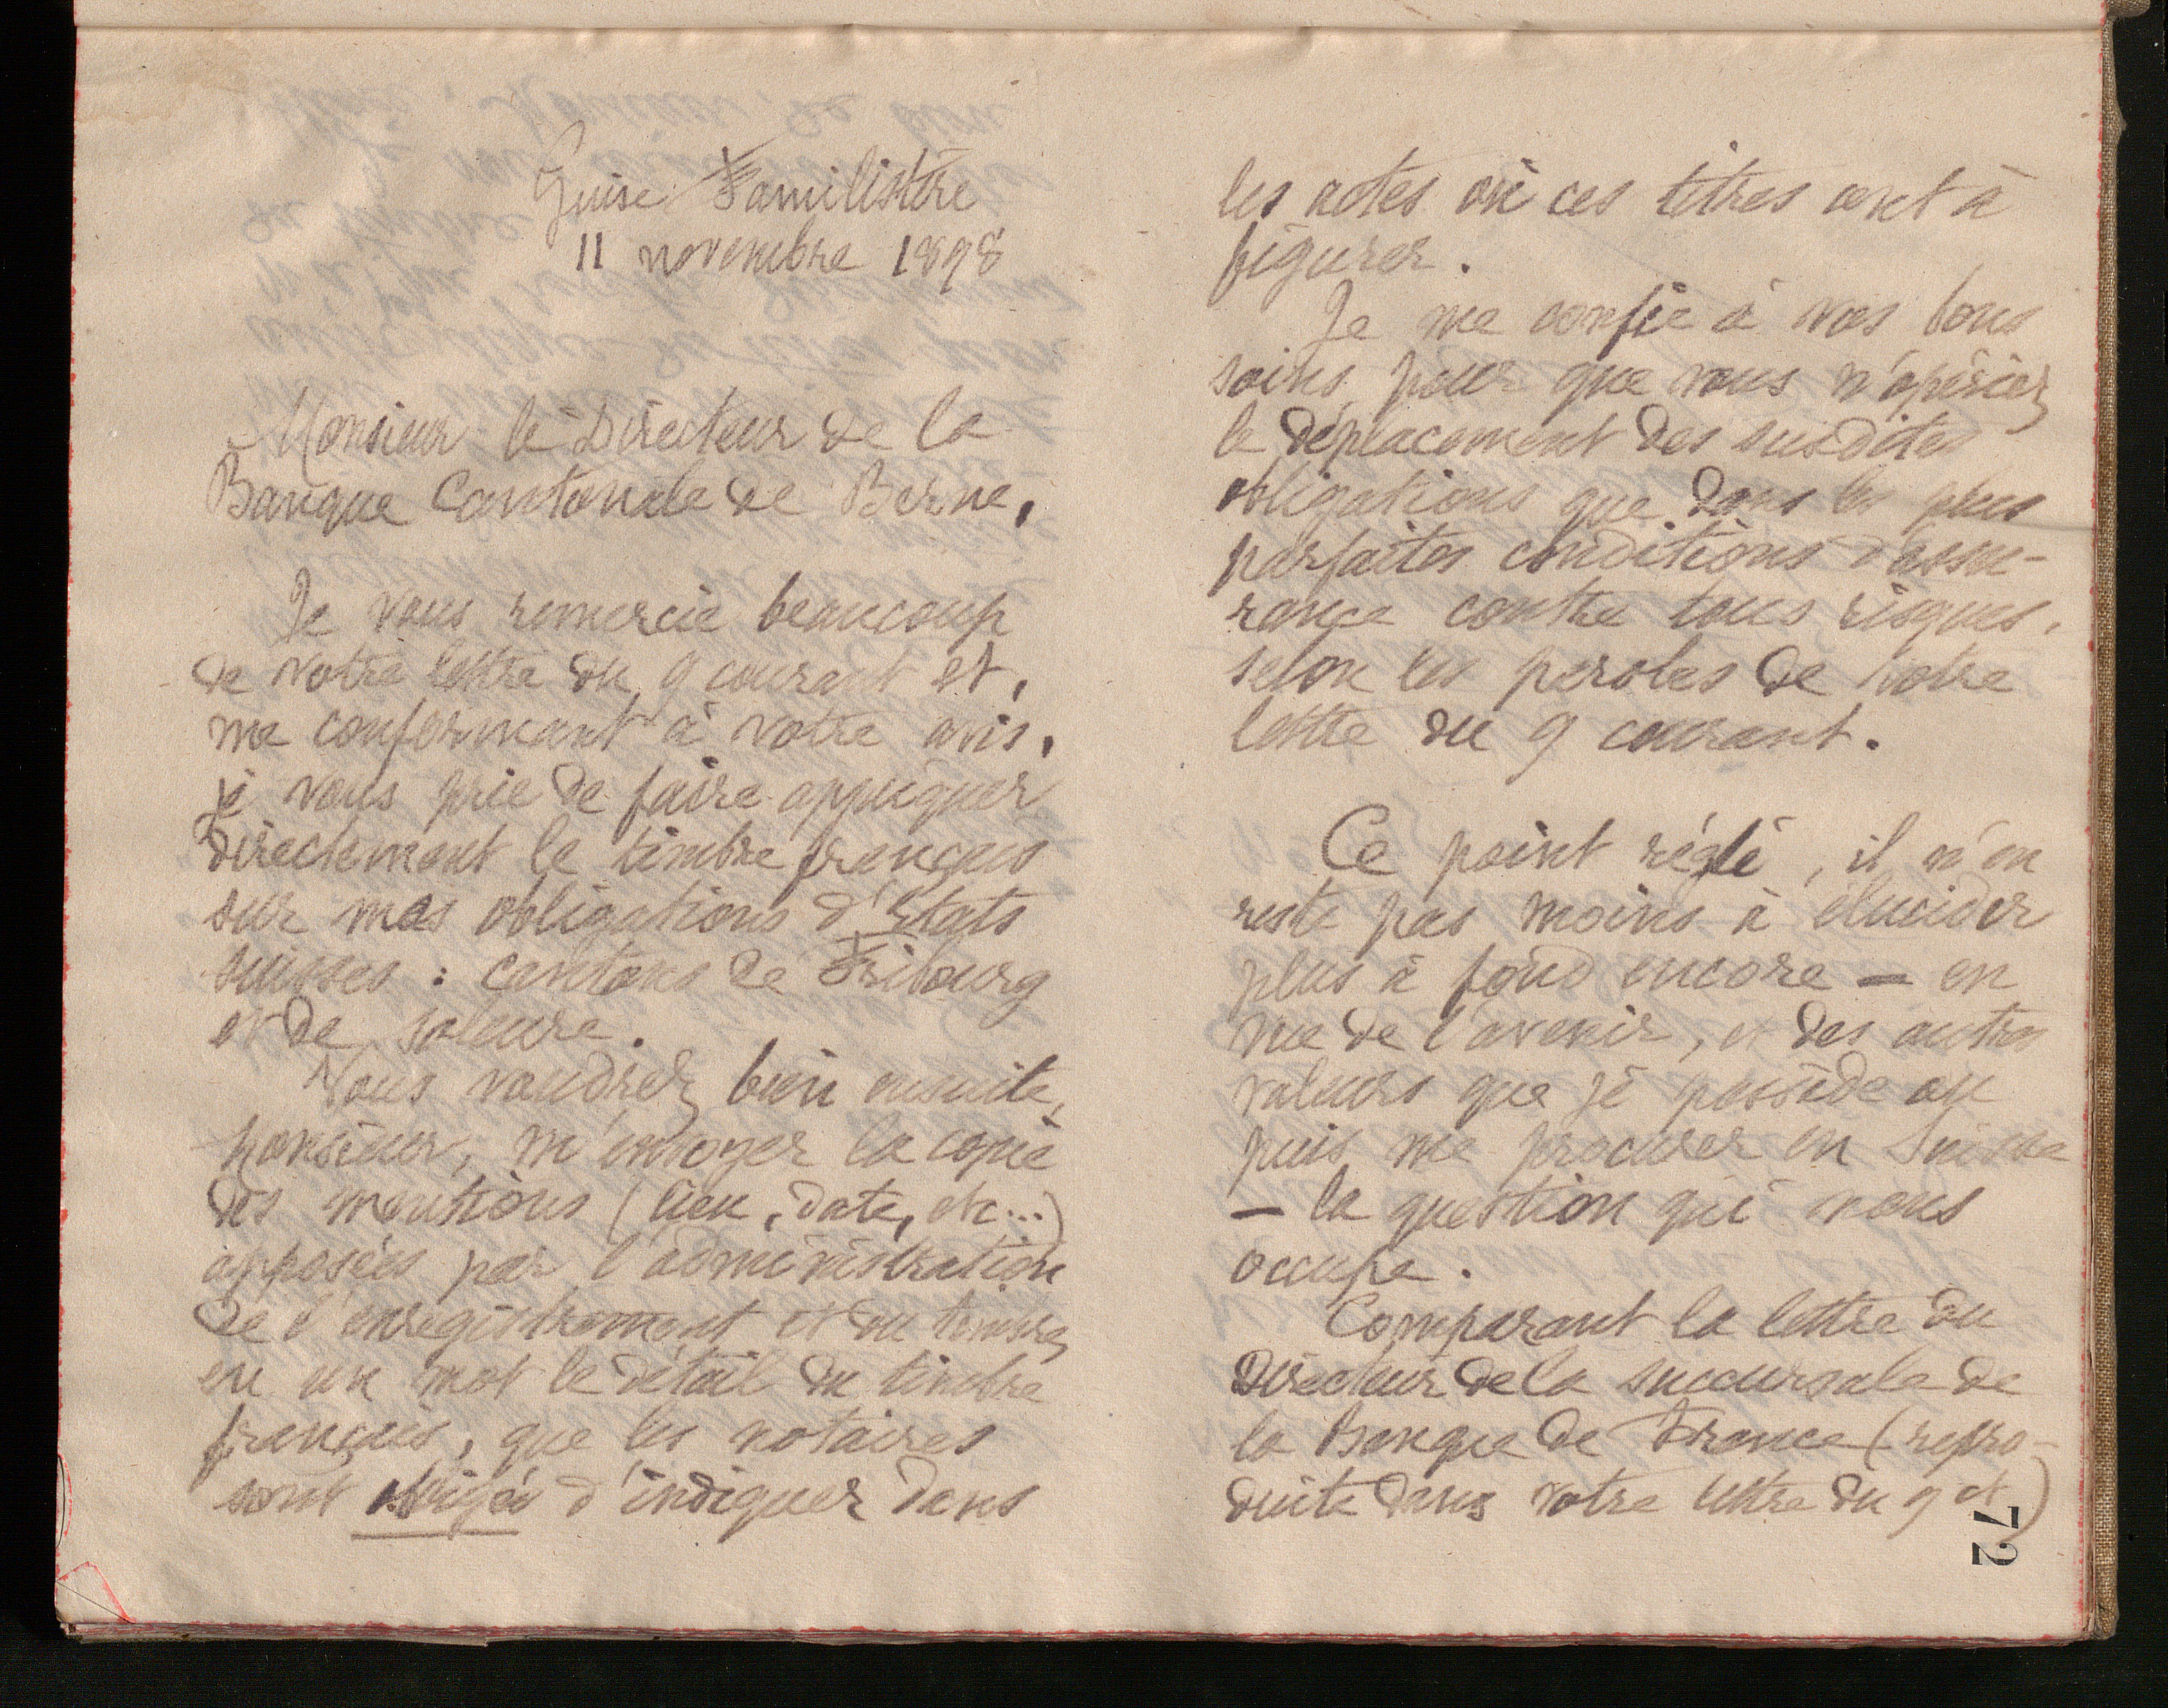 Guise Familistère
11 novembre 1898
Monsieur le Directeur de la
Banque Cantonale de Berne,
Je vous remercie beaucoup
de votre lettre du 9 courant et,
me conformant à votre avis,
je vous prie de faire appliquer
directement le timbre français
sur mes obligations d'Etats
suisses : cantons de Fribourg
et de Soleure.
Vous voudrez bien ensuite,
Monsieur, m'envoyer la copie
des mentions (lieu, date, etc...)
apposées par l'administration
de l'enregistrement et du timbre,
en un mot le détail du timbre
français, que les notaires
sont obligés d'indiquer dans
les actes où ces titres ont à
figurer.
Je me confie à vos bons
soins pour que vous n'opériez
le déplacement des susdites
obligations que dans les plus
parfaites conditions d'assu-
rance contre tous risques,
selon les paroles de votre
lettre du 9 courant.
Ce point réglé, il n'en
reste pas moins à élucider
plus à fond encore - en
vue de l'avenir, et des autres
valeurs que je possède ou
puis me procurer en Suisse
- la question qui nous
occupe.
Comparant la lettre du
Directeur de la succursale de
la Banque de France (repro-
duite dans votre lettre du 9 ct)
72